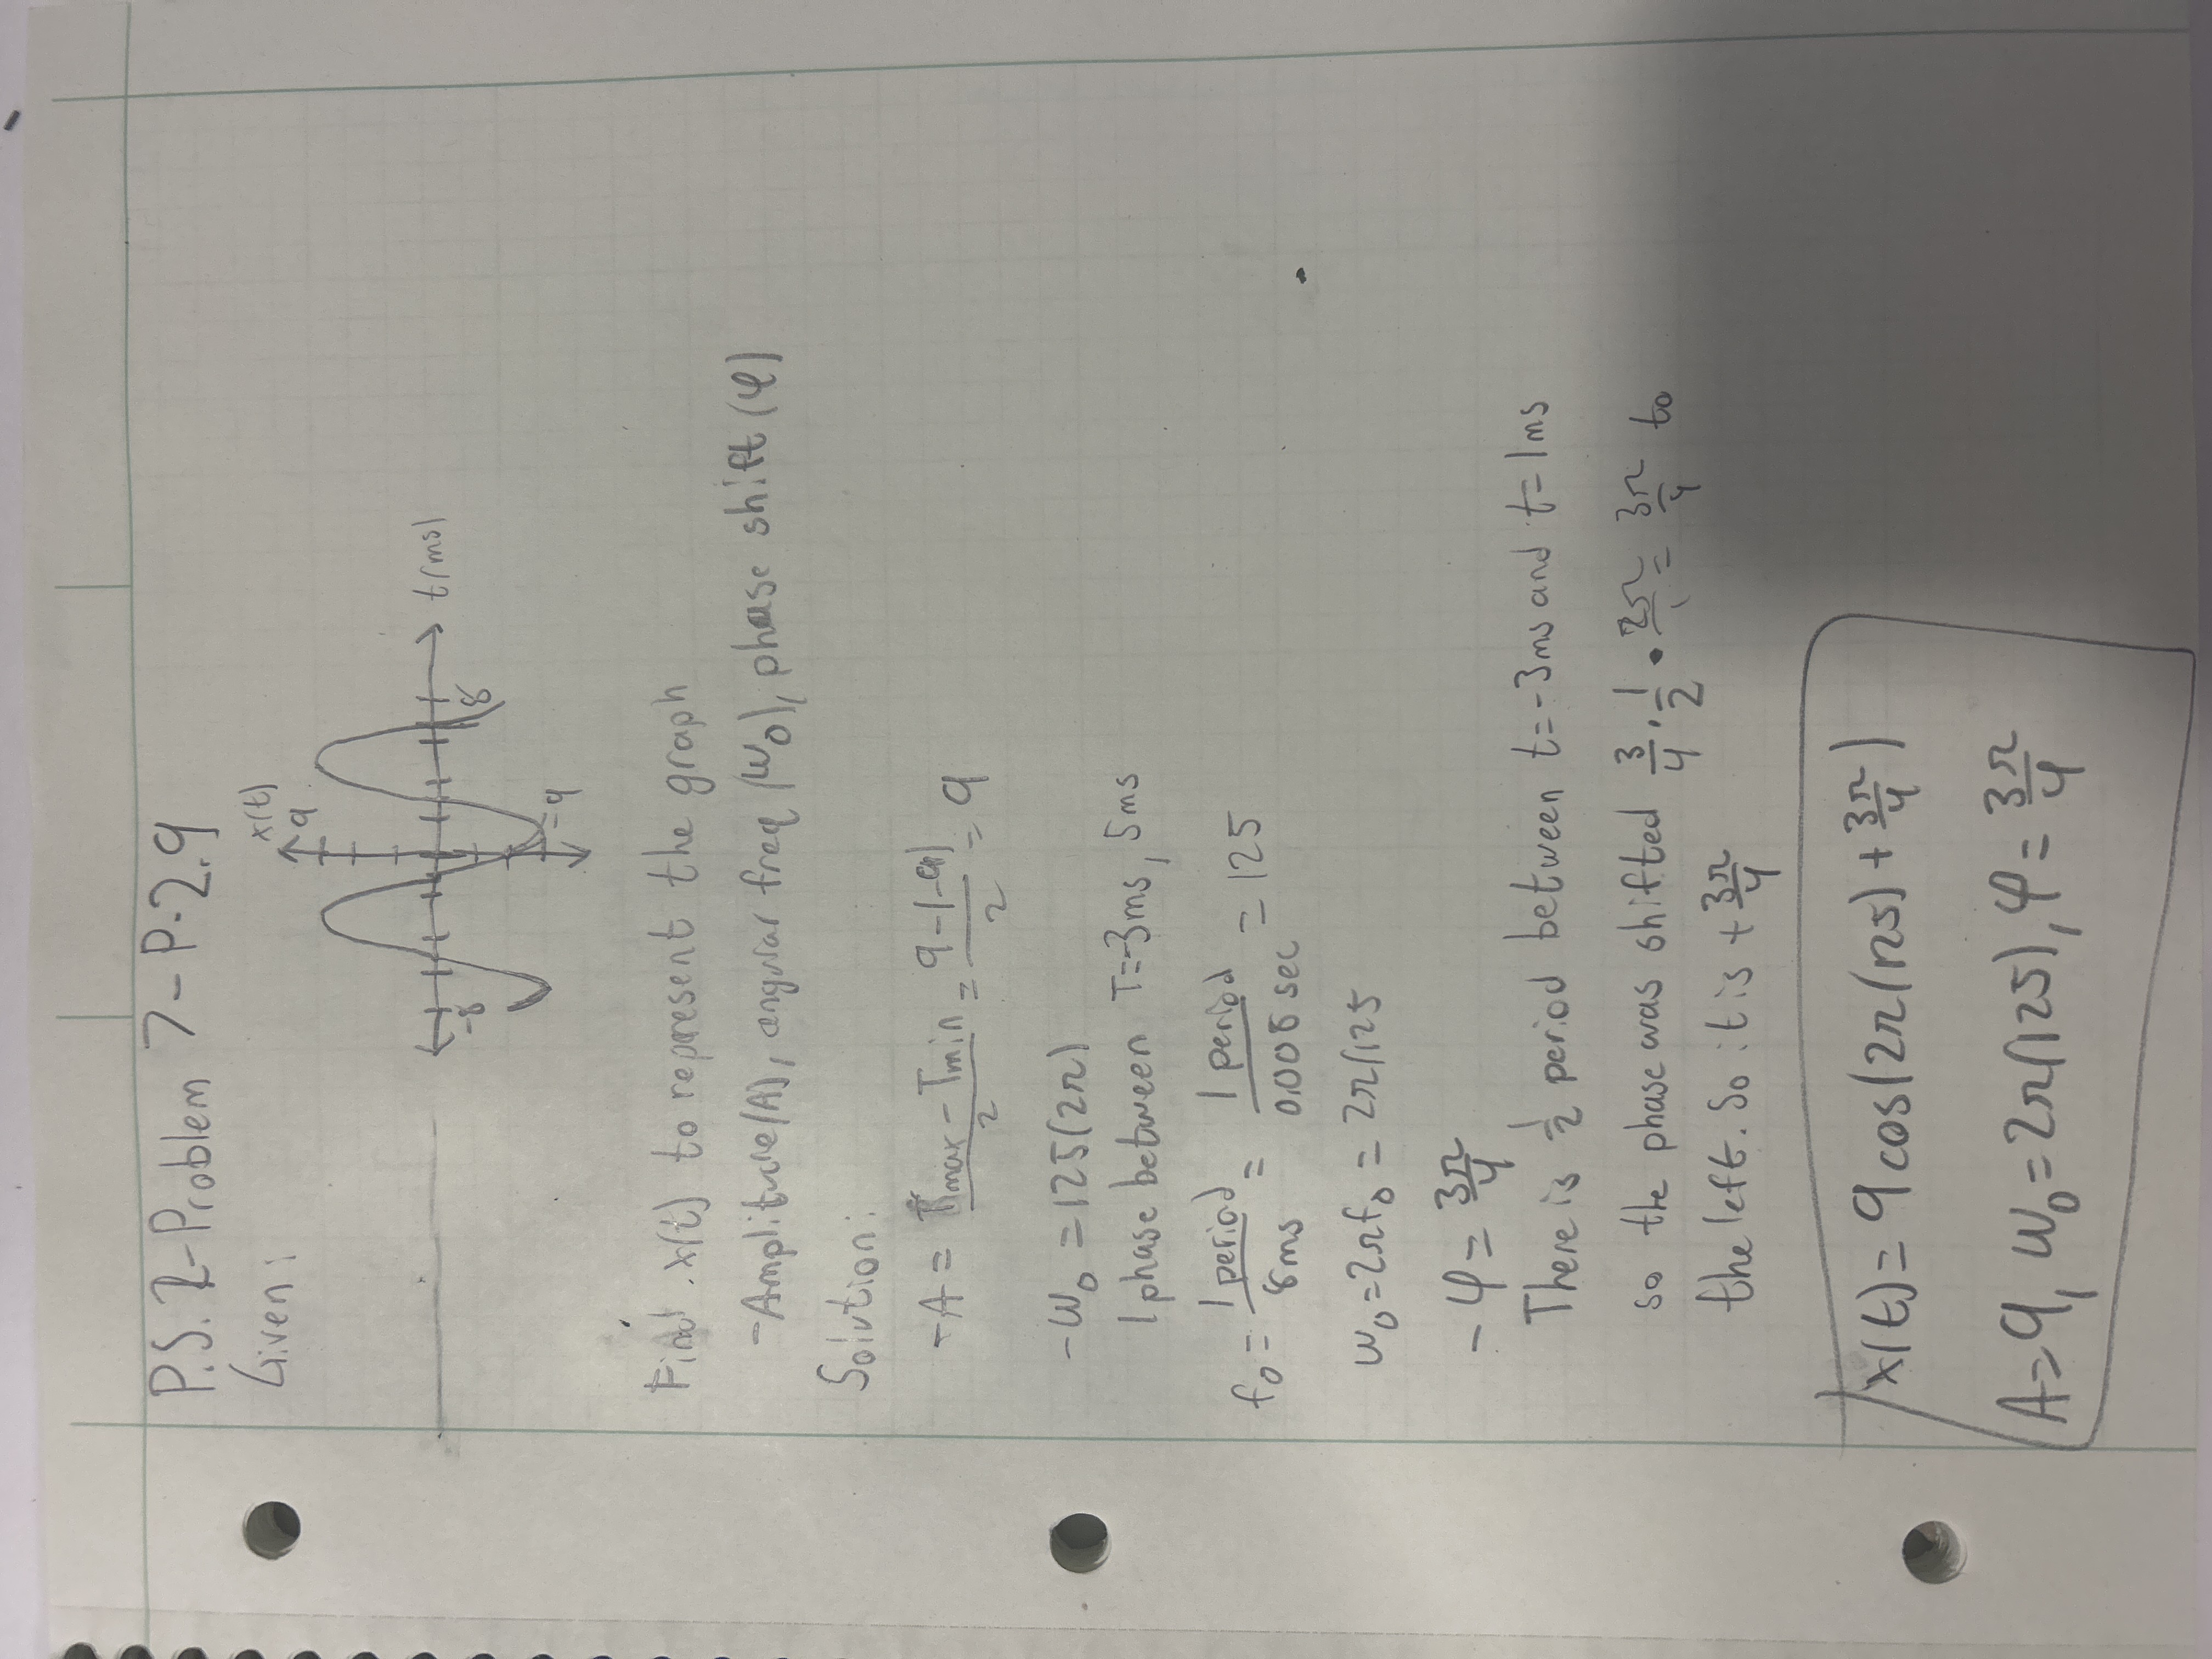 P.S. 2-Problem 7-P-2.9
Given:
x(t)
9
t(ms)
-8
8
-9
Find x(t) to represent the graph
-Amplitude(A), angular freq (ω₀), phase shift (φ)
Solution:
-A = Tmax - Tmin / 2 = 9-(-9) / 2 = 9
-ω₀ = 125(2π)
1 phase between T=-3ms, 5ms
f₀ = 1 period / 8ms = 1 period / 0.008 sec = 125
ω₀ = 2πf₀ = 2π(125
-φ = 3π/4
There is 1/2 period between t=-3ms and t=1ms
so the phase was shifted 3/4 · 1/2 · 2π/1 = 3π/4 to
the left. So it is + 3π/4
x(t) = 9cos(2π(125) + 3π/4)
A=9, ω₀=2π(125), φ = 3π/4